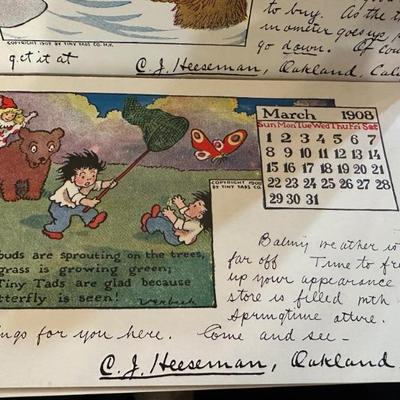 to buy. As the
mometer goes up,
go down. Of
COPYRIGHT 1907 BY TINY TADS CO. N.Y.
get it at
C. J. Heeseman, Oakland, Cal
March 1908
Sun Mon Tue Wed Thu Fri Sat
1 2 3 4 5 6 7
8 9 10 11 12 13 14
15 16 17 18 19 20 21
22 23 24 25 26 27 28
29 30 31
COPYRIGHT 1908
BY TINY TADS CO.
buds are sprouting on the trees,
grass is growing green;
Tiny Tads are glad because
tterfly is seen!
Verbeek
Balmy weather is
far off Time to
up your appearance
store is filled with
Springtime attire.
ngs for you here. Come and see -
C. J. Heeseman, Oakland